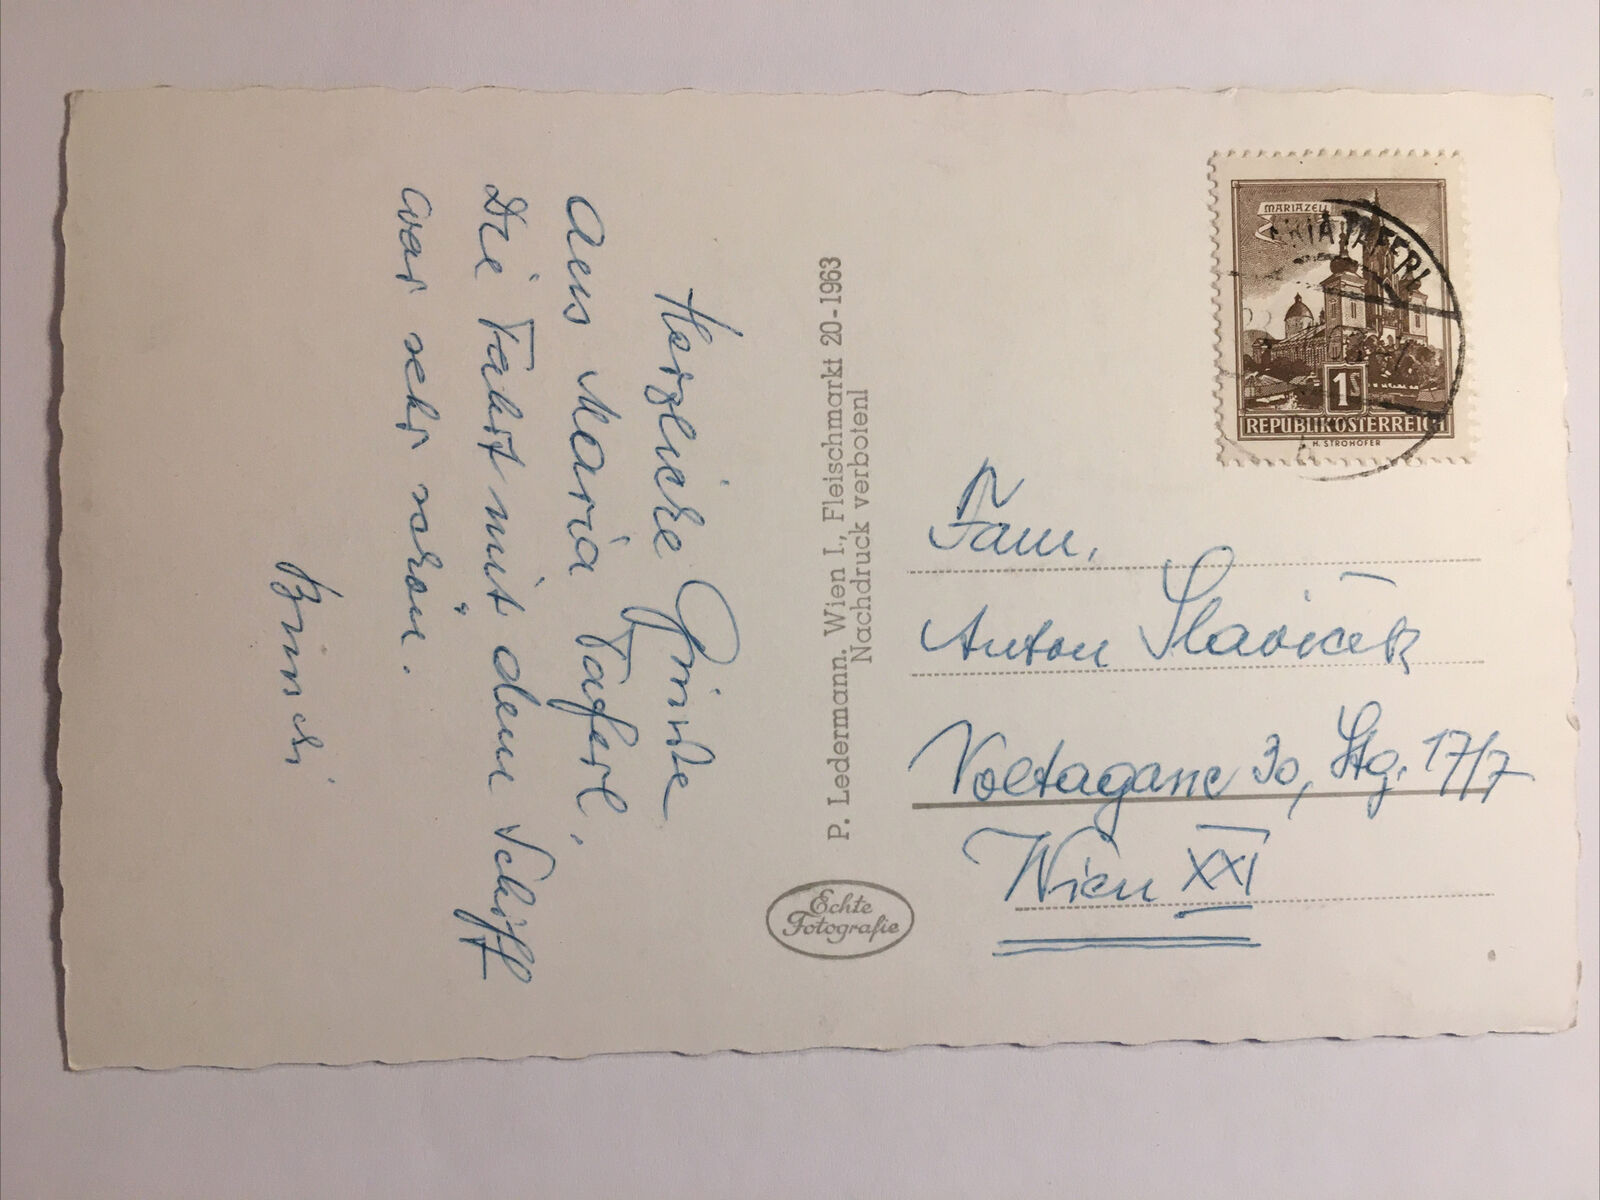 Herzliche Grüße
aus Maria Taferl,
Die Fahrt mit dem Schiff
war sehr schön.
P. Ledermann. Wien I., Fleischmarkt 20-1963
Nachdruck verboten!
Echte
Fotografie
MARIAZELL
RIA TAFERL
1S
REPUBLIK ÖSTERREICH
H. STROHOFER
Fam.
Anton Slavicek
Voltagasse 30, Stg. 17/7
Wien XXI